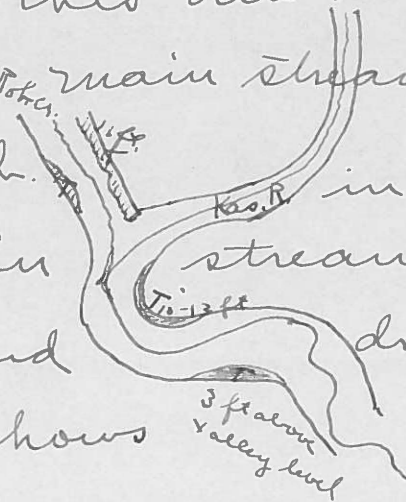 main strea
Tob Cr.
16 ft.
h.
Kas. R.
in
in
strea
T 10-12 ft
dr
nd
3 ft above
valley level
hows